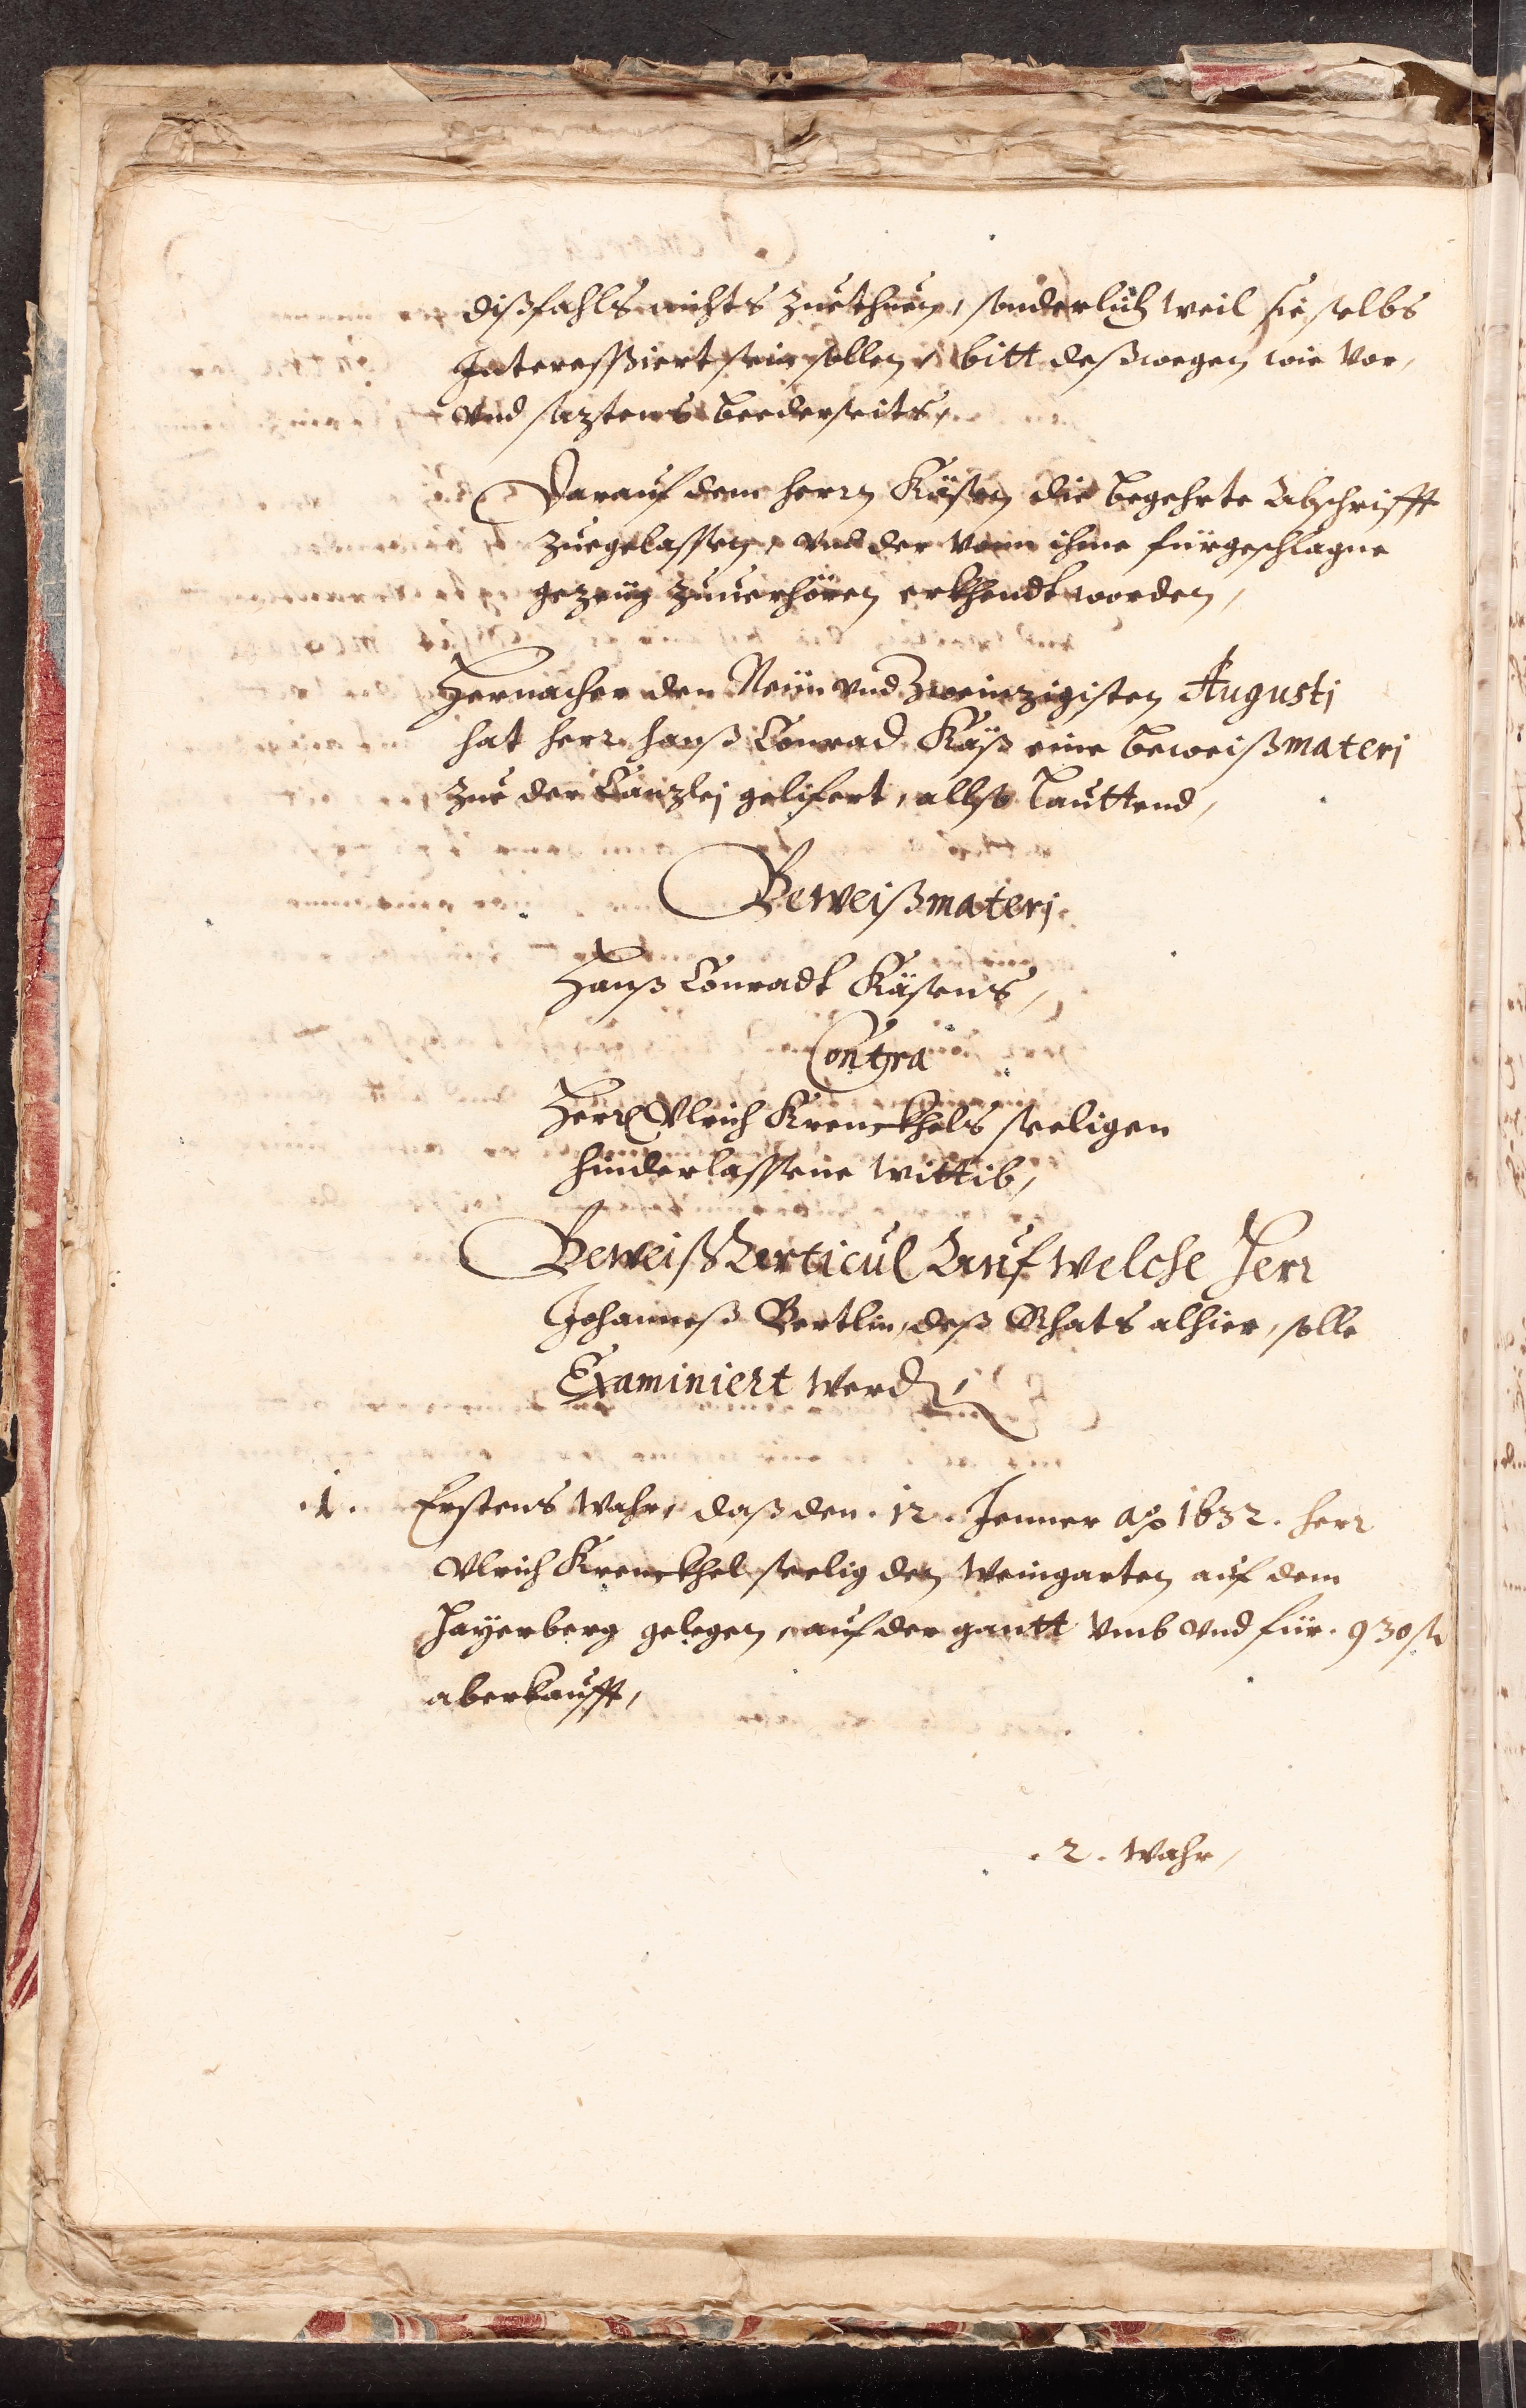 dißfahls nichts zuethuen, sonderlich weil sie selbs
Interessiert sein sollen, bitt deßwegen wie vor,
vnd saztens beederseits,
Darauf dem herrn Käsen die begehrte Abschrifft
zuegelassen, vnd der vonn ihme fürgeschlagne
gezeüg zuuerhören erkhendt worden,
Hernacher den Neün vnd Zweinzigisten Augustj
hat herr hanß Conrad Käß eine beweißmaterj
zue der Canzlej gelifert, allso lauttend,
Beweißmaterj.
Hanß Conradt Käsens,
Contra
Herrn Vlrich Krenckhels seeligen
hinderlassene Wittib,
Beweiß Articul Auf welche Herr
Johanneß Bertlin, deß Rhats alhier, solle
Examiniert werden,
.1. Erstens wahr, daß den .12. Jenner aō 1632. herr
Vlrich Krenckhel seelig den Weingarten auf dem
Hayerberg gelegen, auf der gantt vmb vnd für .930 fl
aberkaufft,
.2. Wahr,